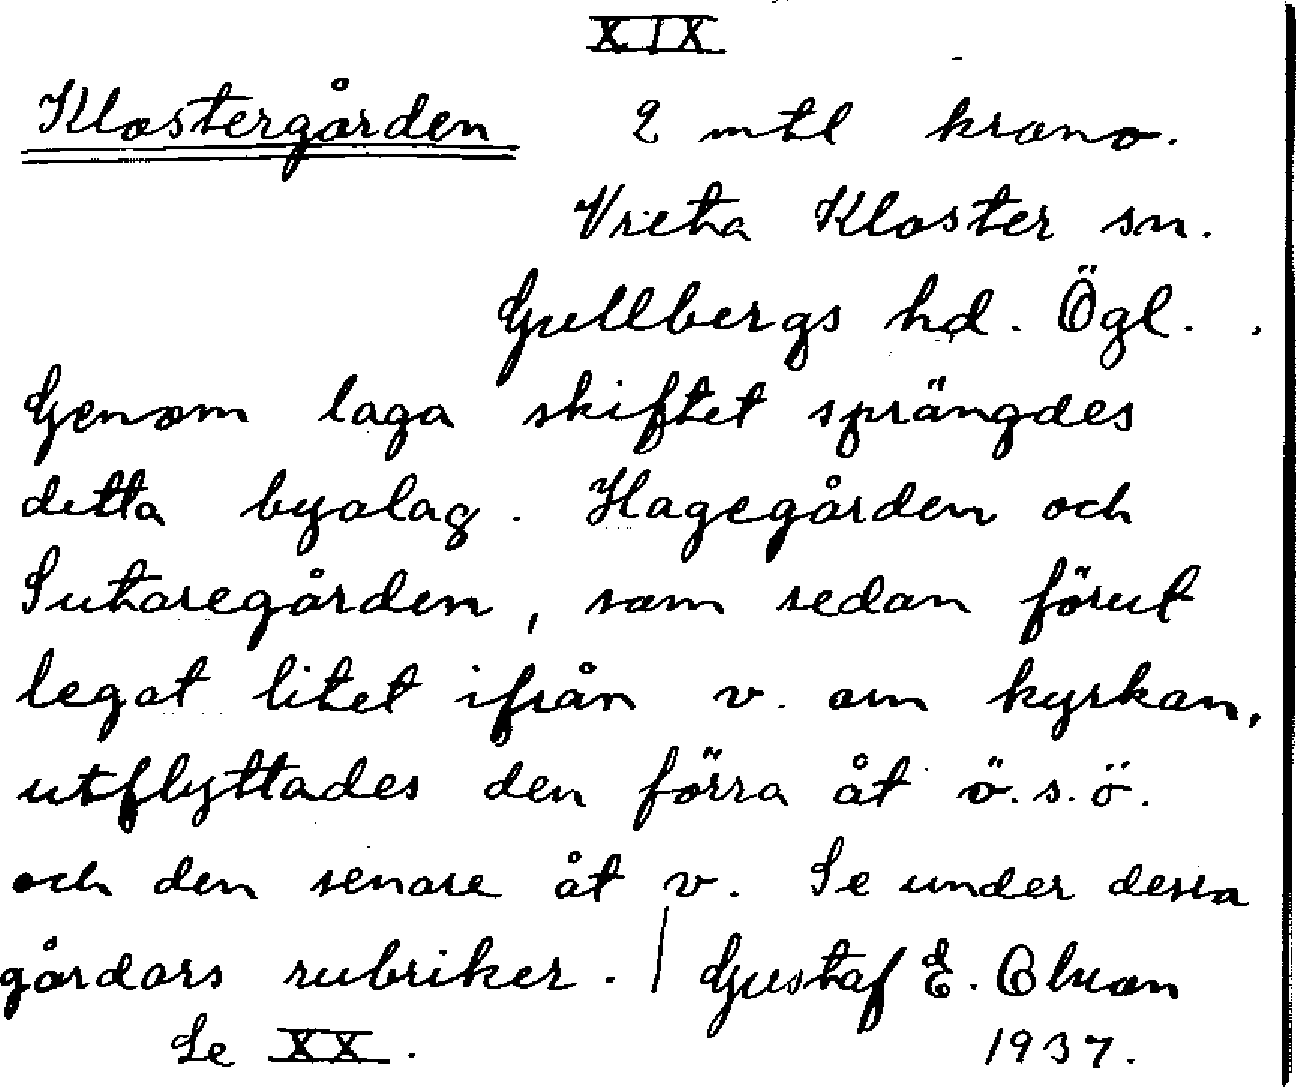 XIX
Klostergården 2 mtl krono.
Vreta Kloster sn.
Gullbergs hd. Ögl.
Genom laga skiftet sprängdes
detta byalag. Hagegården och
Sutaregården, som redan förut
legat litet ifrån v. om kyrkan,
utflyttades den förra åt ö.s.ö.
och den senare åt v. Se under dessa
gårdars rubriker. / Gustaf E.
Se XX. 1937.